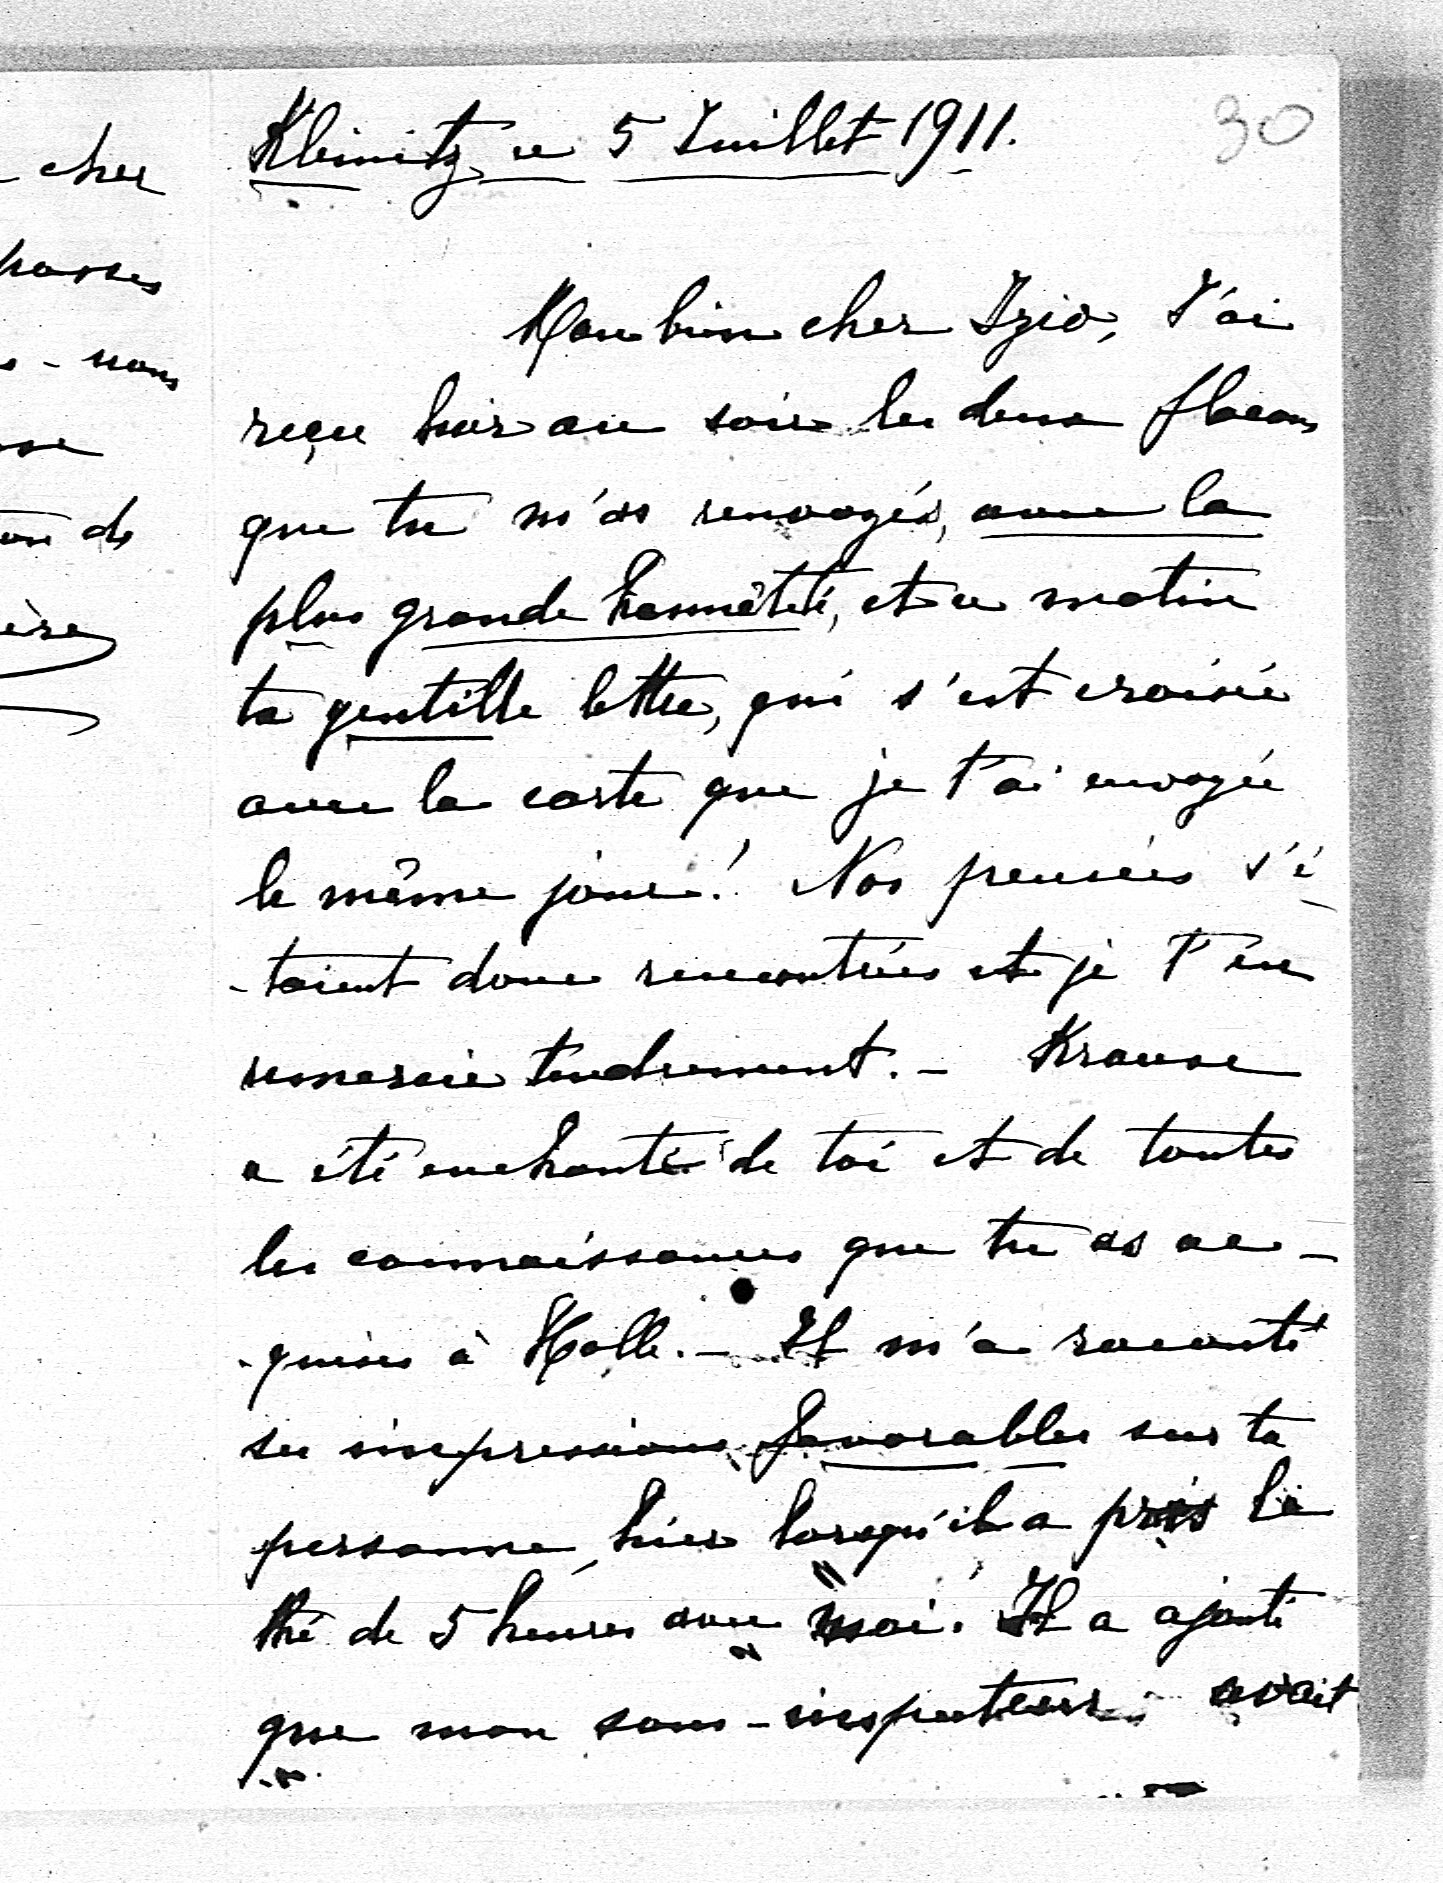 cher
passes
- nous
de
ère
30
Klemitz ce 5 Juillet 1911.
Mon bien cher Izio, J'ai
reçu hier au soir les deux flacons
que tu m'as renvoyés, avec la
plus grande honnêteté, et ce matin
ta gentille lettre, qui s'est croisée
avec la carte que je t'ai envoyée
le même jour! Nos pensées s'é
-taient donc rencontrées et je t'en
remercie tendrement. - Krause
a été enchanté de toi et de toutes
les connaissances que tu as ac-
-quises à Halle. - Il m'a raconté
ses impressions favorables sur ta
personne, hier lorsqu'il a pris le
thé de 5 heures avec moi. Il a ajouté
que mon sous-inspecteur avait